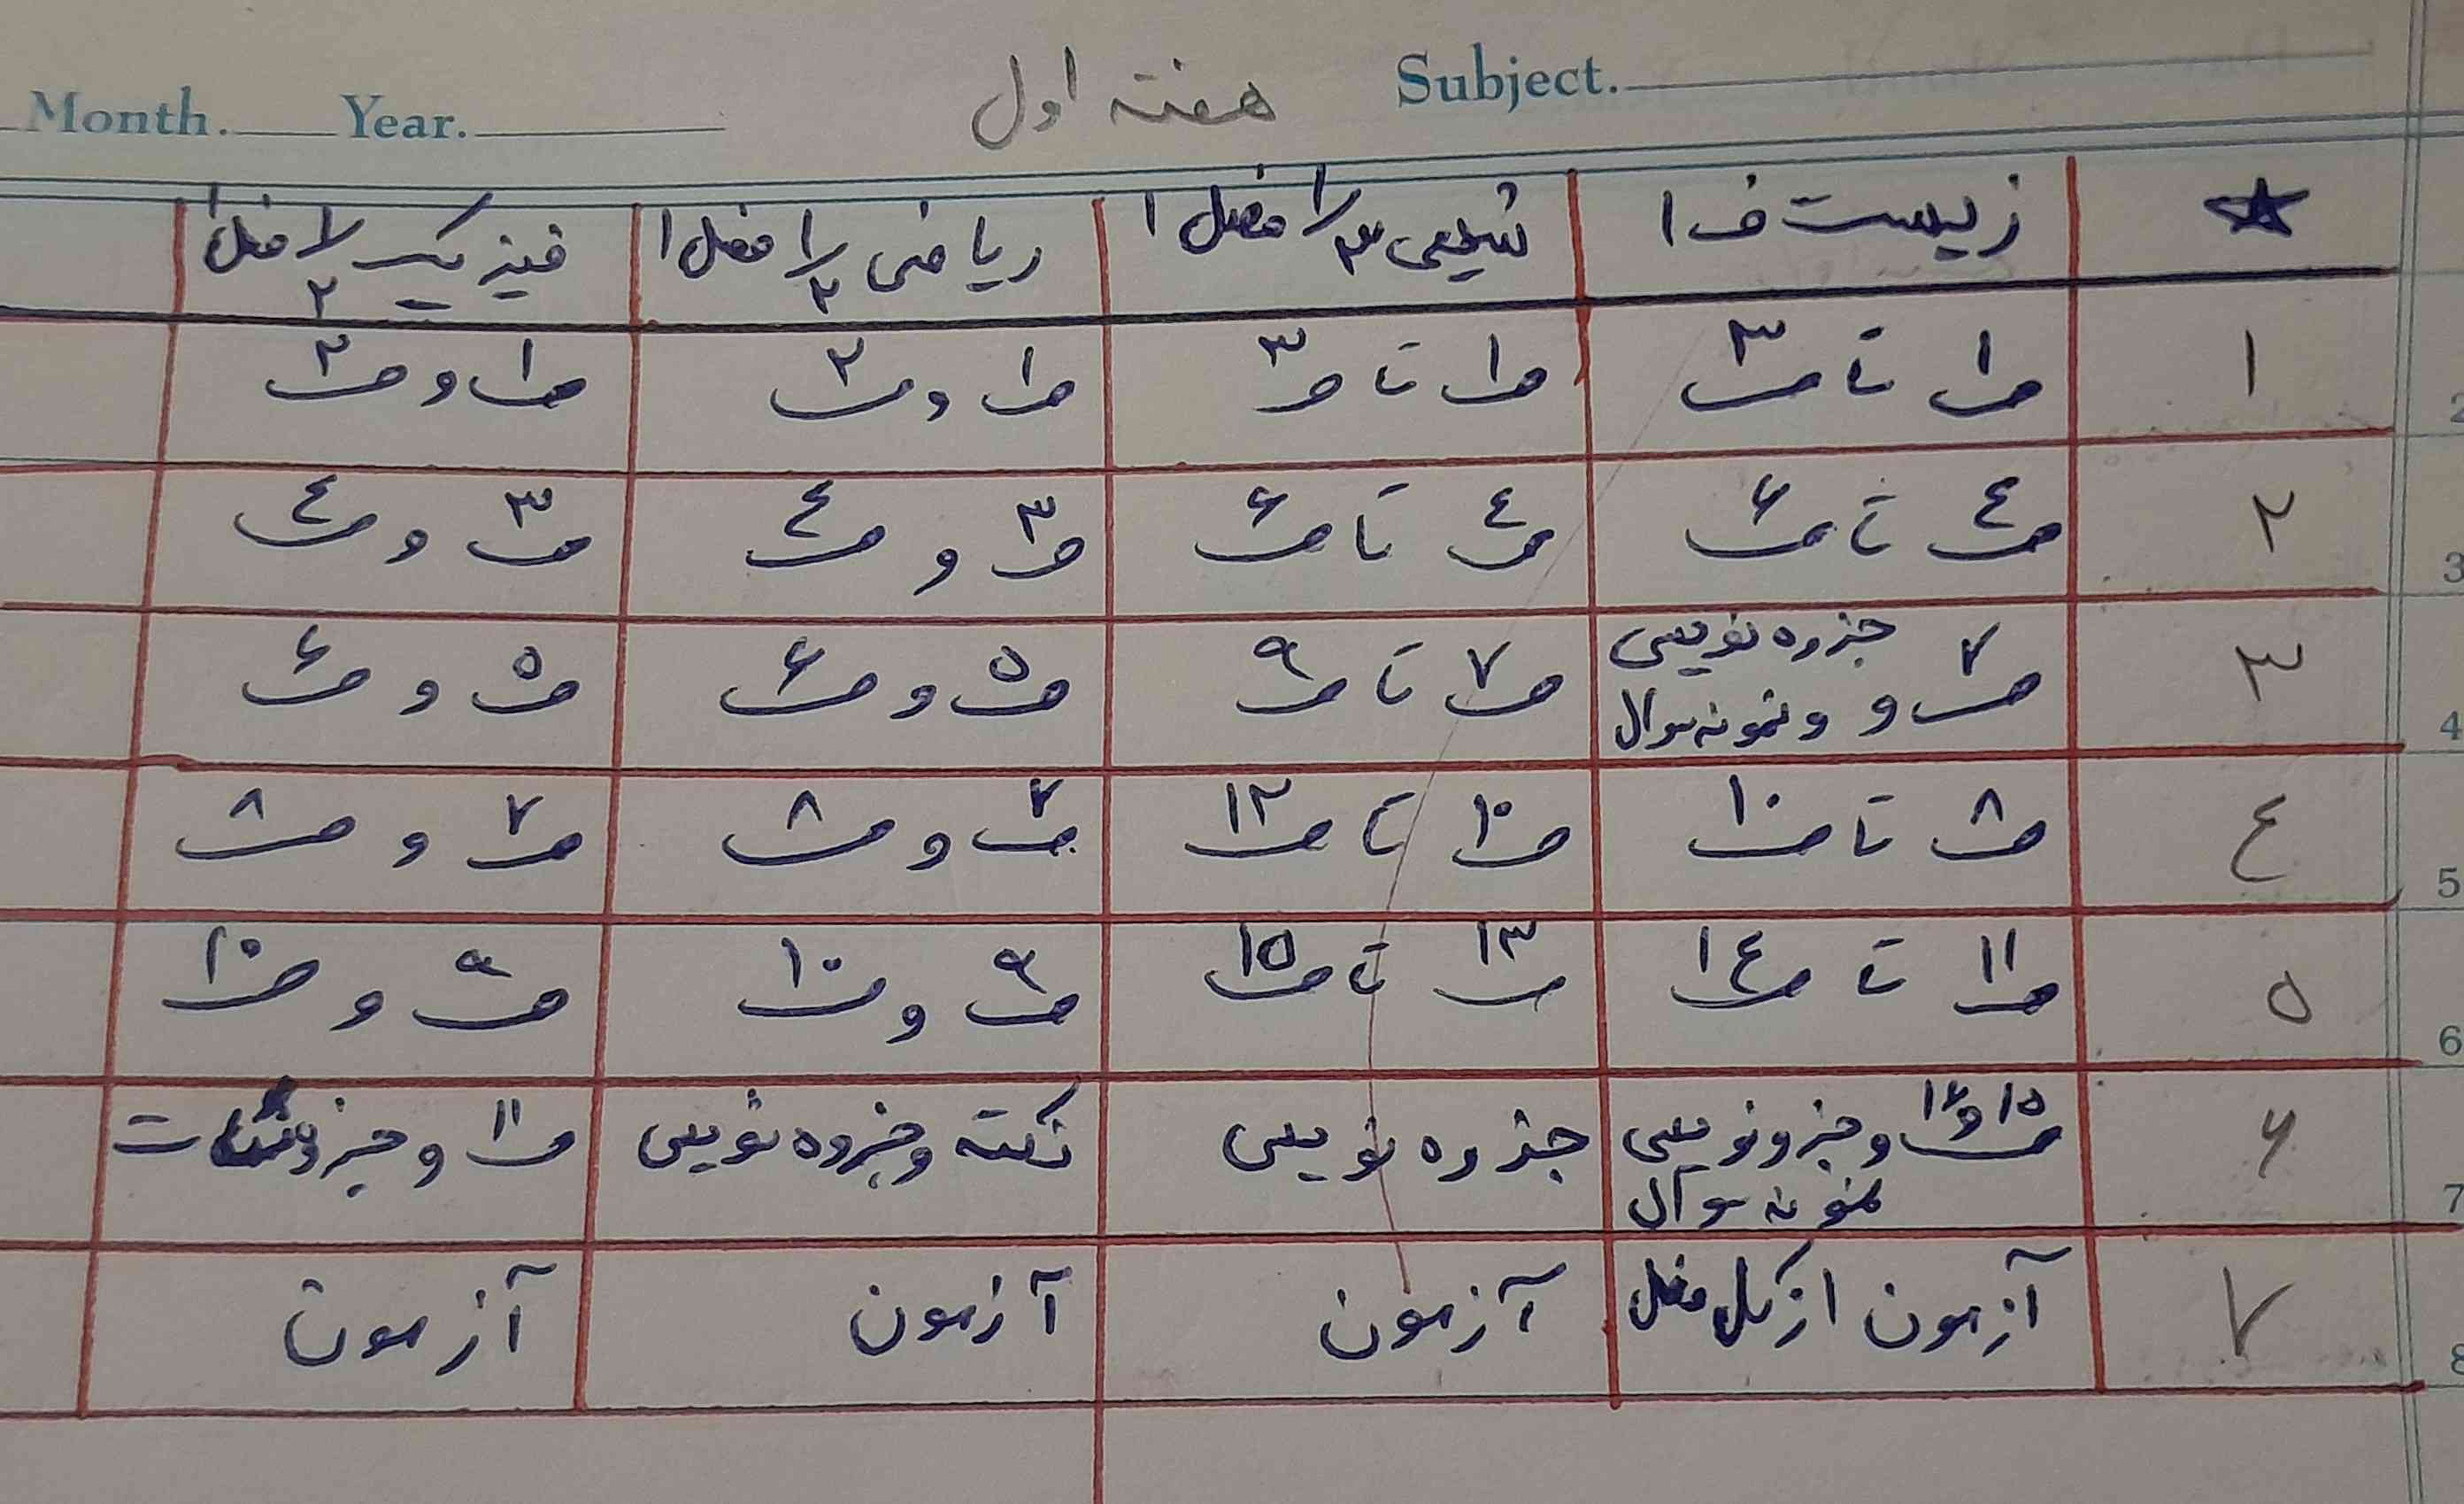 Subject.
هفته اول
Month. Year.
★ زیست ف ۱ شیمی ۱/۳ فصل ۱ ریاضی ۱/۲ فصل ۱ فیزیک ۱/۲ فصل ۱
۱ ص۱ تا ص۳ ص۱ تا ص۳ ص۱ و ص۲ ص۱ و ص۲
۲ ص۴ تا ص۶ ص۴ تا ص۶ ص۳ و ص۴ ص۳ و ص۴
۳ ص۷ و جزوه نویسی و نمونه سوال ص۷ تا ص۹ ص۵ و ص۶ ص۵ و ص۶
۴ ص۸ تا ص۱۰ ص۱۰ تا ص۱۲ ص۷ و ص۸ ص۷ و ص۸
۵ ص۱۱ تا ص۱۴ ۱۳ تا ص۱۵ ص۹ و ص۱۰ ص۹ و ص۱۰
۶ ۱۵ و ۱۶ و جزونویسی نمونه سوال جزوه نویسی نکته و جزوه نویسی ص۱۱ و جزو
۷ آزمون از کل فصل آزمون آزمون آزمون
2
3
4
5
6
7
8